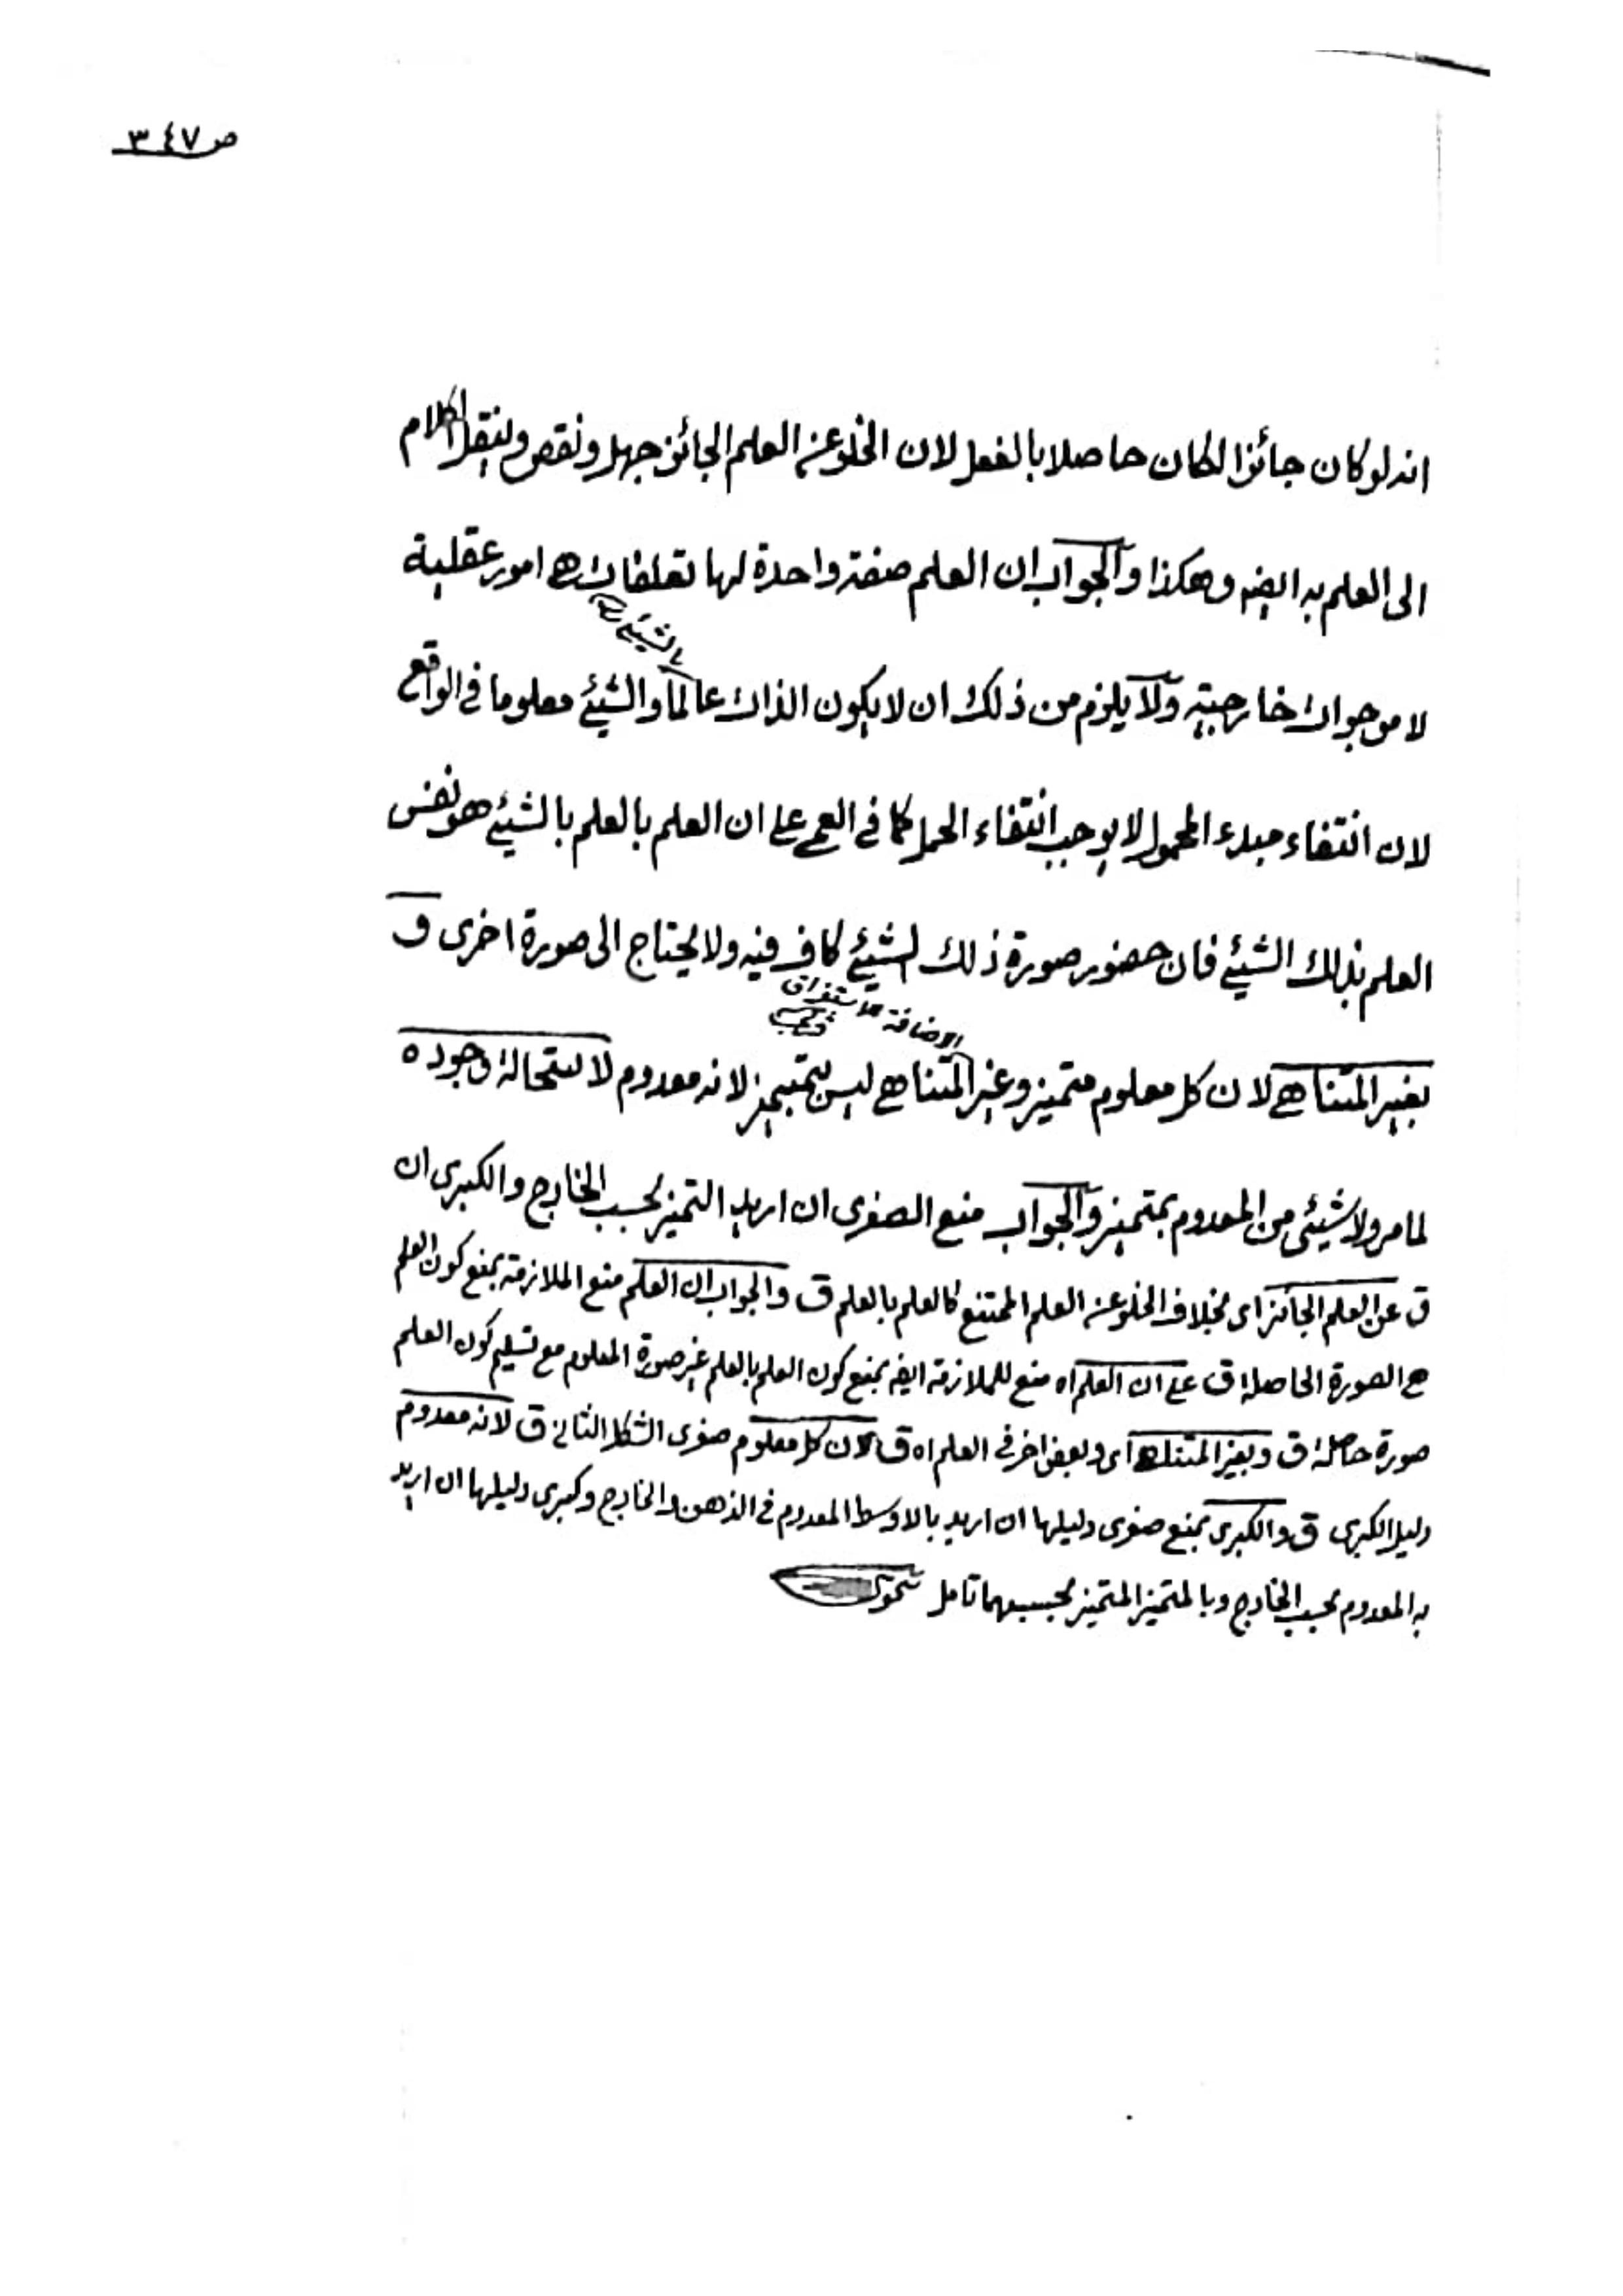 ص ٣٤٧
انه لو كان جائزا لكان حاصلا بالفعل لان الخلو عن العلم الجائز جهل ونقص ولننقل الكلام
الى العلم به ايضه وهكذا والجواب ان العلم صفة واحدة لها تعلقات هى امور عقلية
لا موجوات خارجية ولا يلزم من ذلك ان لا يكون الذات عالما والشيئ معلوما فى الواقع
بالشيئ
لان انتفاء مبدء المحمول لا يوجب انتفاء الحمل كما فى العمى على ان العلم بالعلم بالشيئ هو نفس
العلم بذلك الشيئ فان حضور صورة ذلك الشيئ كاف فيه ولا يحتاج الى صورة اخرى و
الاضافة للاستغراق
بغير المتناهى لان كل معلوم متميز وغير المتناهى ليس بمتميز لانه معدوم لاستحالة وجوده
لما مر ولا شيئ من المعدوم بمتميز والجواب منع الصغرى ان اريد التميز بحسب الخارج والكبرى ان
ق عن العلم الجائز اى بخلاف الخلو عن العلم الممتنع كالعلم بالعلم ق والجواب ان العلم منع الملازمة بمنع كون العلم
هى الصورة الحاصلة ق على ان العلم اه منع للملازمة ايضه بمنع كون العلم بالعلم غير صورة المعلوم مع تسليم كون العلم
صورة حاصلة ق وبغير المتناهى اى وبعض اخر فى العلم اه ق لان كل معلوم صغرى الشكل الثانى ق لانه معدوم
دليل الكبرى ق والكبرى بمنع صغرى دليلها ان اريد بالاوسط المعدوم فى الذهن والخارج وكبرى دليلها ان اريد
به المعدوم بحسب الخارج وبالمتميز المتميز بحسبهما تامل